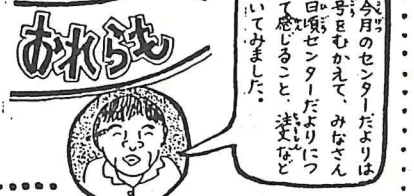 今月のセンターだよりは
号をむかえて、みなさん
日頃センターだよりにつ
て感じること、注文など
いてみました。
おれらも